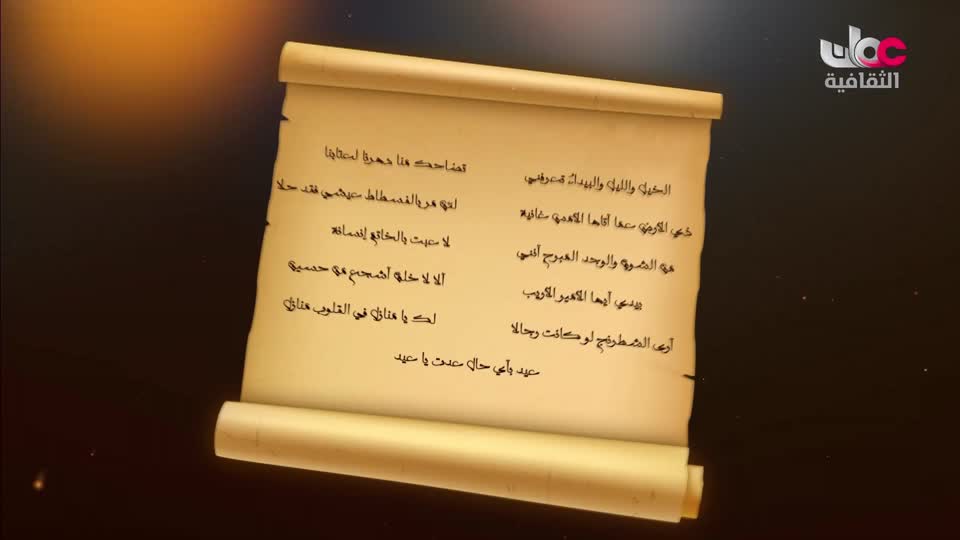 عمان
الثقافية
الخيل والليل والبيداءُ تعرفني
تضاحك منا دهرنا لعتابنا
ذي الأرض عما أتاها الأمس غانية
لئن مر بالفسطاط عيشي فقد حلا
من الشوق والوجد المبرح أنني
لا عبت بالخاتم إنسانة
بيدي أيها الأمير الأريب
ألا لا خلق أشجع من حسين
أرى الشطرنج لو كانت رجالا
لك يا منازل في القلوب منازل
عيد بأي حال عدت يا عيد